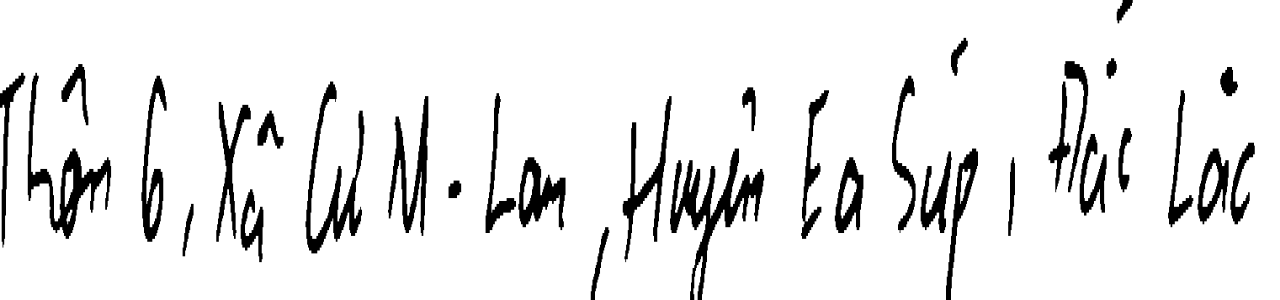 Thôn 6, Xã Cư M.Lan, Huyện Ea Súp, Đắc Lắc